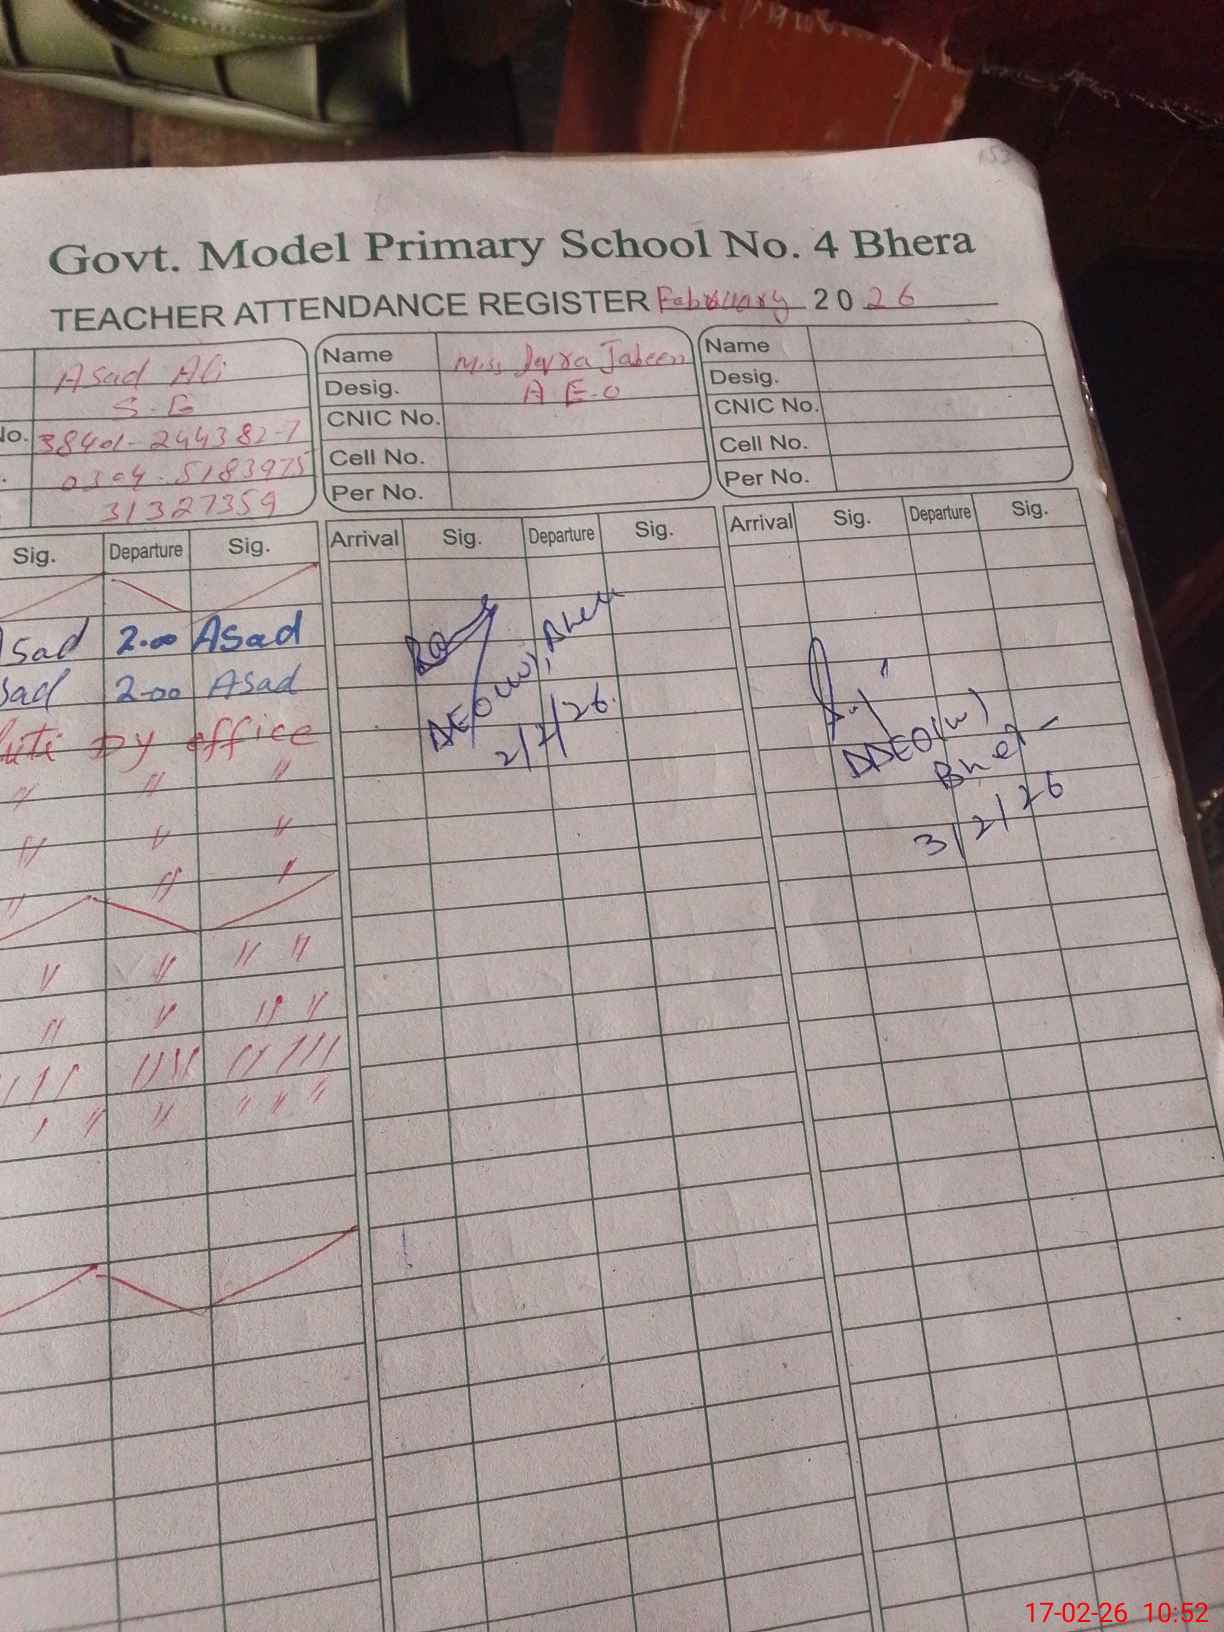 Govt. Model Primary School No. 4 Bhera
TEACHER ATTENDANCE REGISTER February 2026
Asad Ali
No. 38401-244382-7
0304-5183975
31327359
Name Miss Jabeen
Desig. A E.O
CNIC No.
Cell No.
Per No.
Name
Desig.
CNIC No.
Cell No.
Per No.
Sig. Departure Sig.
Arrival Sig. Departure Sig.
Arrival Sig. Departure Sig.
Asad 2.00 Asad
sad 2.00 Asad
by office
" " "
" " "
" " "
" " " "
" " " "
" " " "
Bhera
2/2/26.
DDEO(w)
3/2/26
17-02-26 10:52